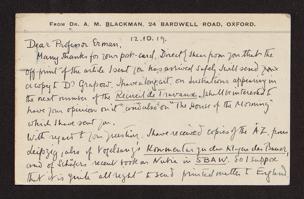 From Dr. A. M. BLACKMAN, 24 BARDWELL ROAD, OXFORD.
12.10.19.
Dear Professor Erman,
Many thanks for your post-card. Directly I hear from you that the
off-print of the article I sent you has arrived safely I shall send you
a copy to Dr Grapow. I have a long art. on lustrations appearing in
the next number of the Recueil de Travaux. I shall be interested to
have your opinion on it and also on "The House of the Morning"
which I have sent you.
With regard to your question. I have received copies of the ÄZ. from
Leipzig, also of Vogelsang's Kommentar zu den Klagen des Bauern,
and of Schäfer's recent book on Nubia in SBAW. So I suppose
that it is quite all right to send printed matter to England